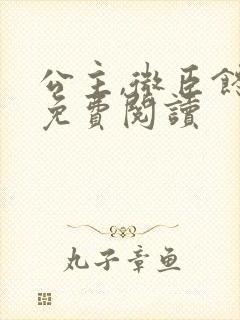 公主,微臣
免費閱讀
丸子章鱼